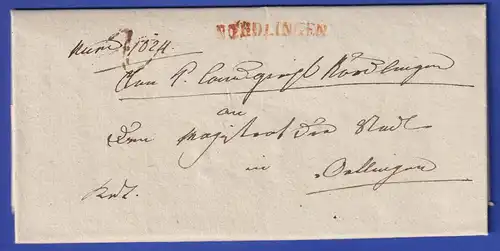 NÖRDLINGEN
Num. 1024.
Vom K. Landgericht Nördlingen
an
Den Magistrat der Stadt
in
Oettingen